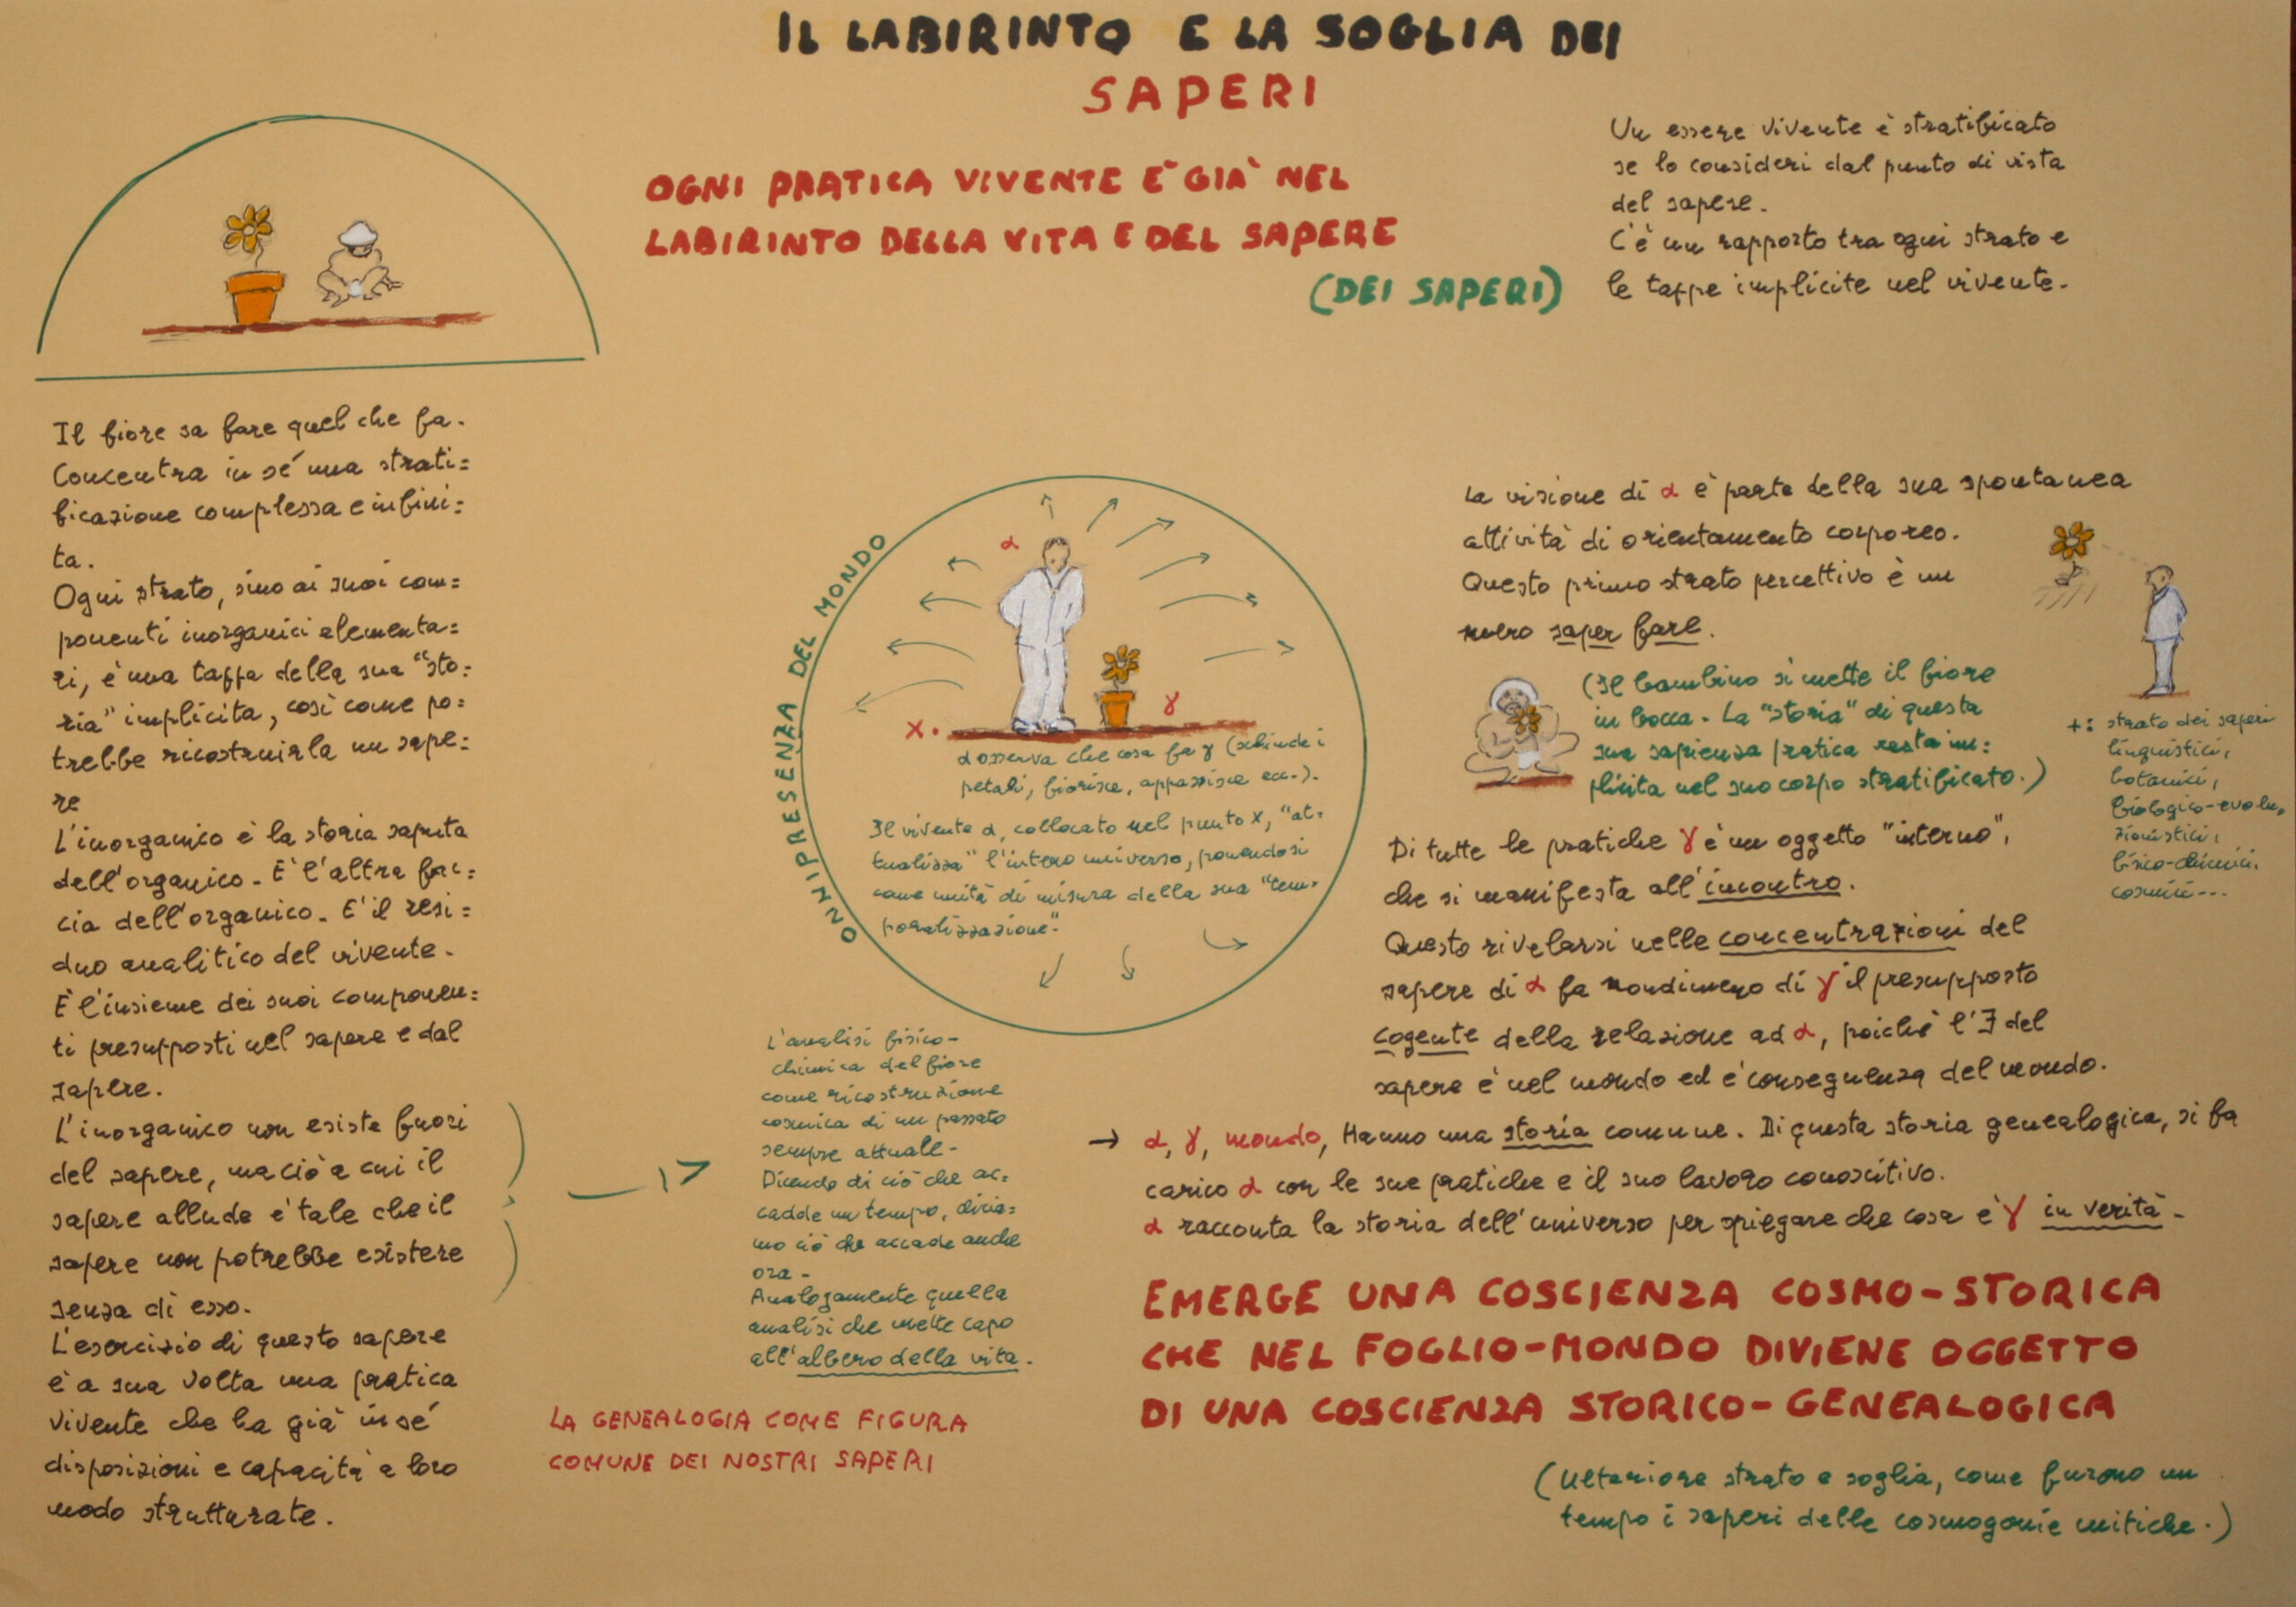 IL LABIRINTO E LA SOGLIA DEI
SAPERI
OGNI PRATICA VIVENTE E' GIA' NEL
LABIRINTO DELLA VITA E DEL SAPERE
(DEI SAPERI)
Un essere vivente è stratificato
se lo consideri dal punto di vista
del sapere.
C'è un rapporto tra ogni strato e
le tappe implicite nel vivente.
Il fiore sa fare quel che fa.
Concentra in sé una strati=
ficazione complessa e infini=
ta.
Ogni strato, sino ai suoi com=
ponenti inorganici elementa=
ri, è una tappa della sua "sto=
ria" implicita, così come po=
trebbe ricostruirla un sape=
re
L'inorganico è la storia saputa
dell'organico. E' l'altra fac=
cia dell'organico. E' il resi=
duo analitico del vivente.
E' l'insieme dei suoi componen=
ti presupposti nel sapere e dal
sapere.
L'inorganico non esiste fuori
del sapere, ma ciò a cui il
sapere allude è tale che il
sapere non potrebbe esistere
senza di esso.
L'esercizio di questo sapere
è a sua volta una pratica
vivente che ha già in sé
disposizioni e capacità a loro
modo strutturate.
ONNIPRESENZA DEL MONDO
α
γ
X.
α osserva che cosa fa γ (schiude i
petali, fiorisce, appassisce ecc.).
Il vivente α, collocato nel punto X, "at=
tualizza" l'intero universo, ponendosi
come unità di misura della sua "tem=
poralizzazione".
L'analisi fisico-
chimica del fiore
come ricostruzione
cosmica di un passato
sempre attuale.
Dicendo di ciò che ac=
cadde un tempo, dicia=
mo ciò che accade anche
ora.
Analogamente quella
analisi che mette capo
all'albero della vita.
LA GENEALOGIA COME FIGURA
COMUNE DEI NOSTRI SAPERI
La visione di α è parte della sua spontanea
attività di orientamento corporeo.
Questo primo strato percettivo è un
mero saper fare.
(Il bambino si mette il fiore
in bocca. La "storia" di questa
sua sapienza pratica resta im=
plicita nel suo corpo stratificato.)
+: strato dei saperi
linguistici,
botanici,
biologico-evolu=
zionistici,
fisico-chimici,
cosmici...
Di tutte le pratiche γ è un oggetto "interno",
che si manifesta all'incontro.
Questo rivelarsi nelle concentrazioni del
sapere di α fa nondimeno di γ il presupposto
cogente della relazione ad α, poiché l'∃ del
sapere è nel mondo ed è conseguenza del mondo.
→ α, γ, mondo, Hanno una storia comune. Di questa storia genealogica, si fa
carico α con le sue pratiche e il suo lavoro conoscitivo.
α racconta la storia dell'universo per spiegare che cosa è γ in verità.
EMERGE UNA COSCIENZA COSMO-STORICA
CHE NEL FOGLIO-MONDO DIVIENE OGGETTO
DI UNA COSCIENZA STORICO-GENEALOGICA
(Ulteriore strato e soglia, come furono un
tempo i saperi delle cosmogonie mitiche.)